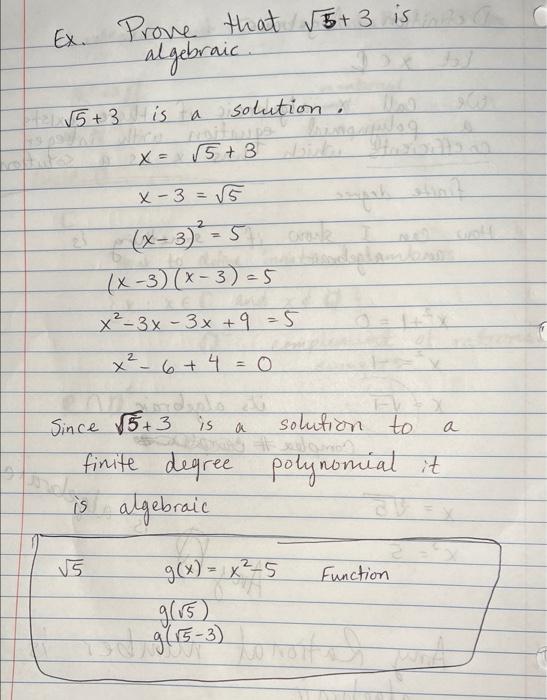 Ex. Prove that √5 + 3 is
algebraic.
√5 + 3 is a solution.
x = √5 + 3
x - 3 = √5
(x - 3)² = 5
(x - 3)(x - 3) = 5
x² - 3x - 3x + 9 = 5
x² - 6 + 4 = 0
Since √5 + 3 is a solution to a
finite degree polynomial it
is algebraic
√5 g(x) = x² - 5 Function
g(√5)
g(√5 - 3)